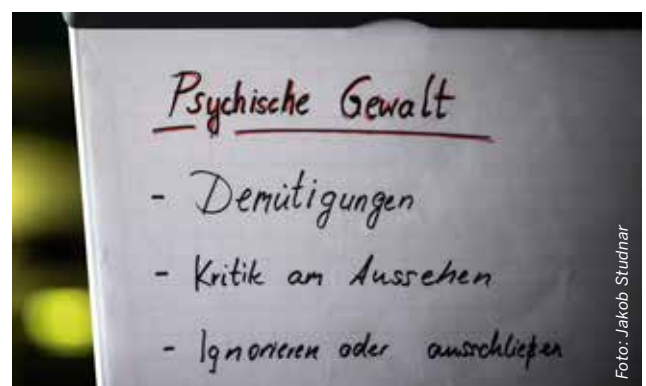 Psychische Gewalt
- Demütigungen
- Kritik am Aussehen
- Ignorieren oder ausschließen
Foto: Jakob Studnar